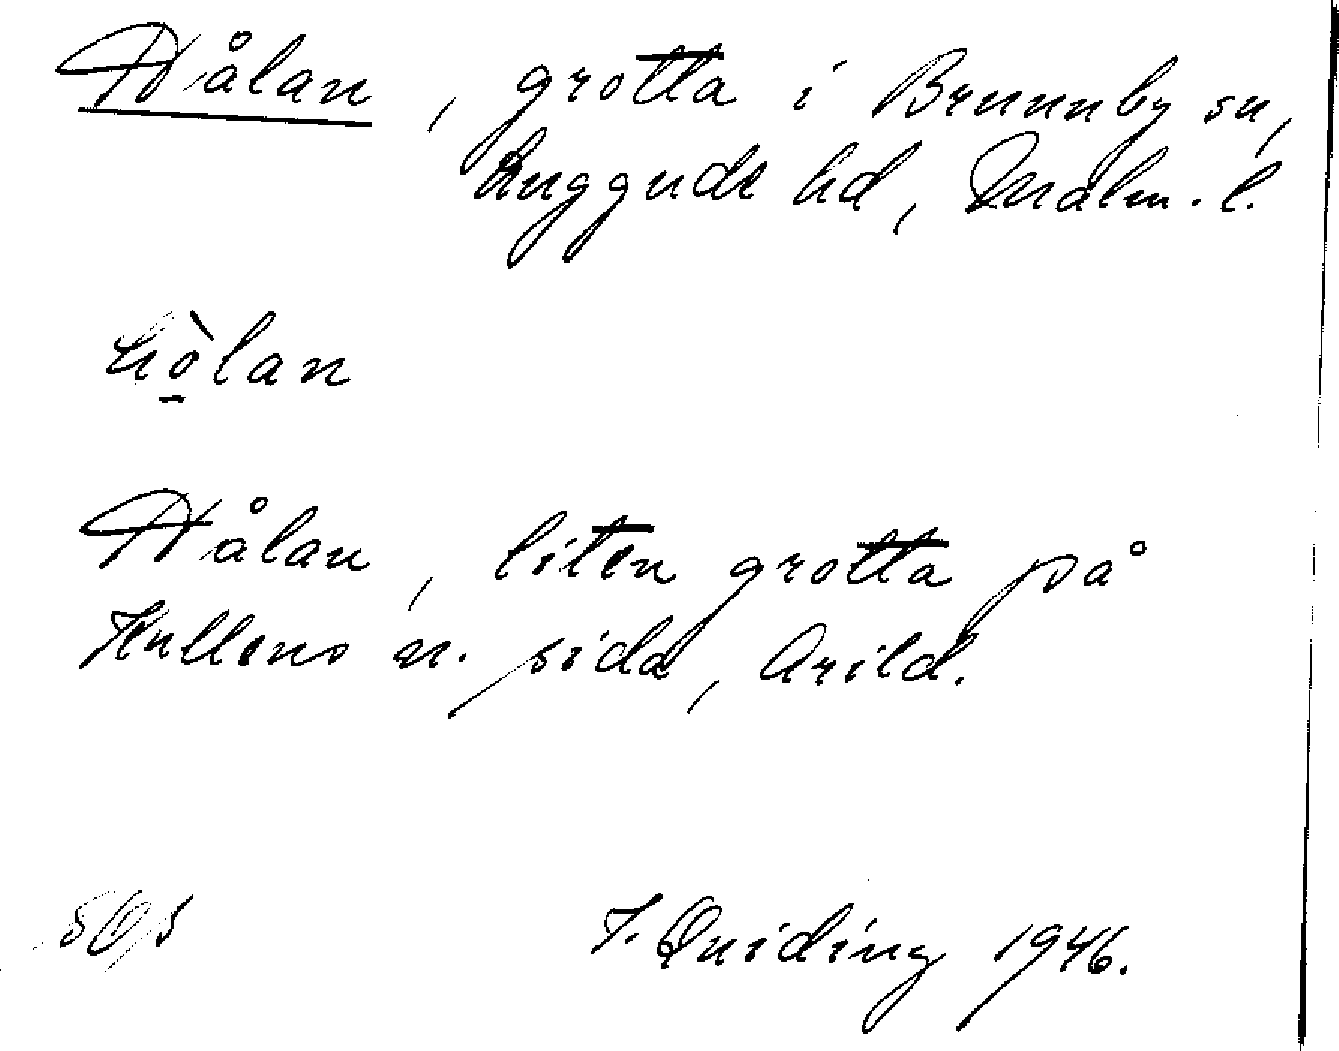 Hålan, grotta i Brunnby sn,
Luggude hd, Malm. l.
hò̱lan
Hålan, liten grotta på
Kullens n. sida, Arild.
T. Quiding 1946.